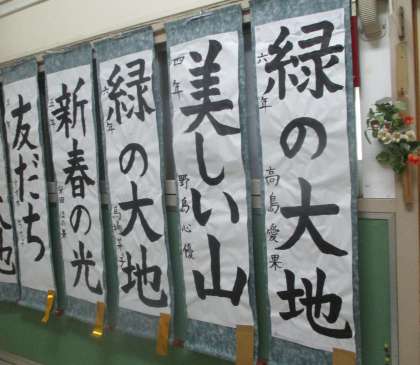 緑の大地
六年
高島愛果
美しい山
四年
野島心優
緑の大地
六年
新春の光
三年
友だち
地